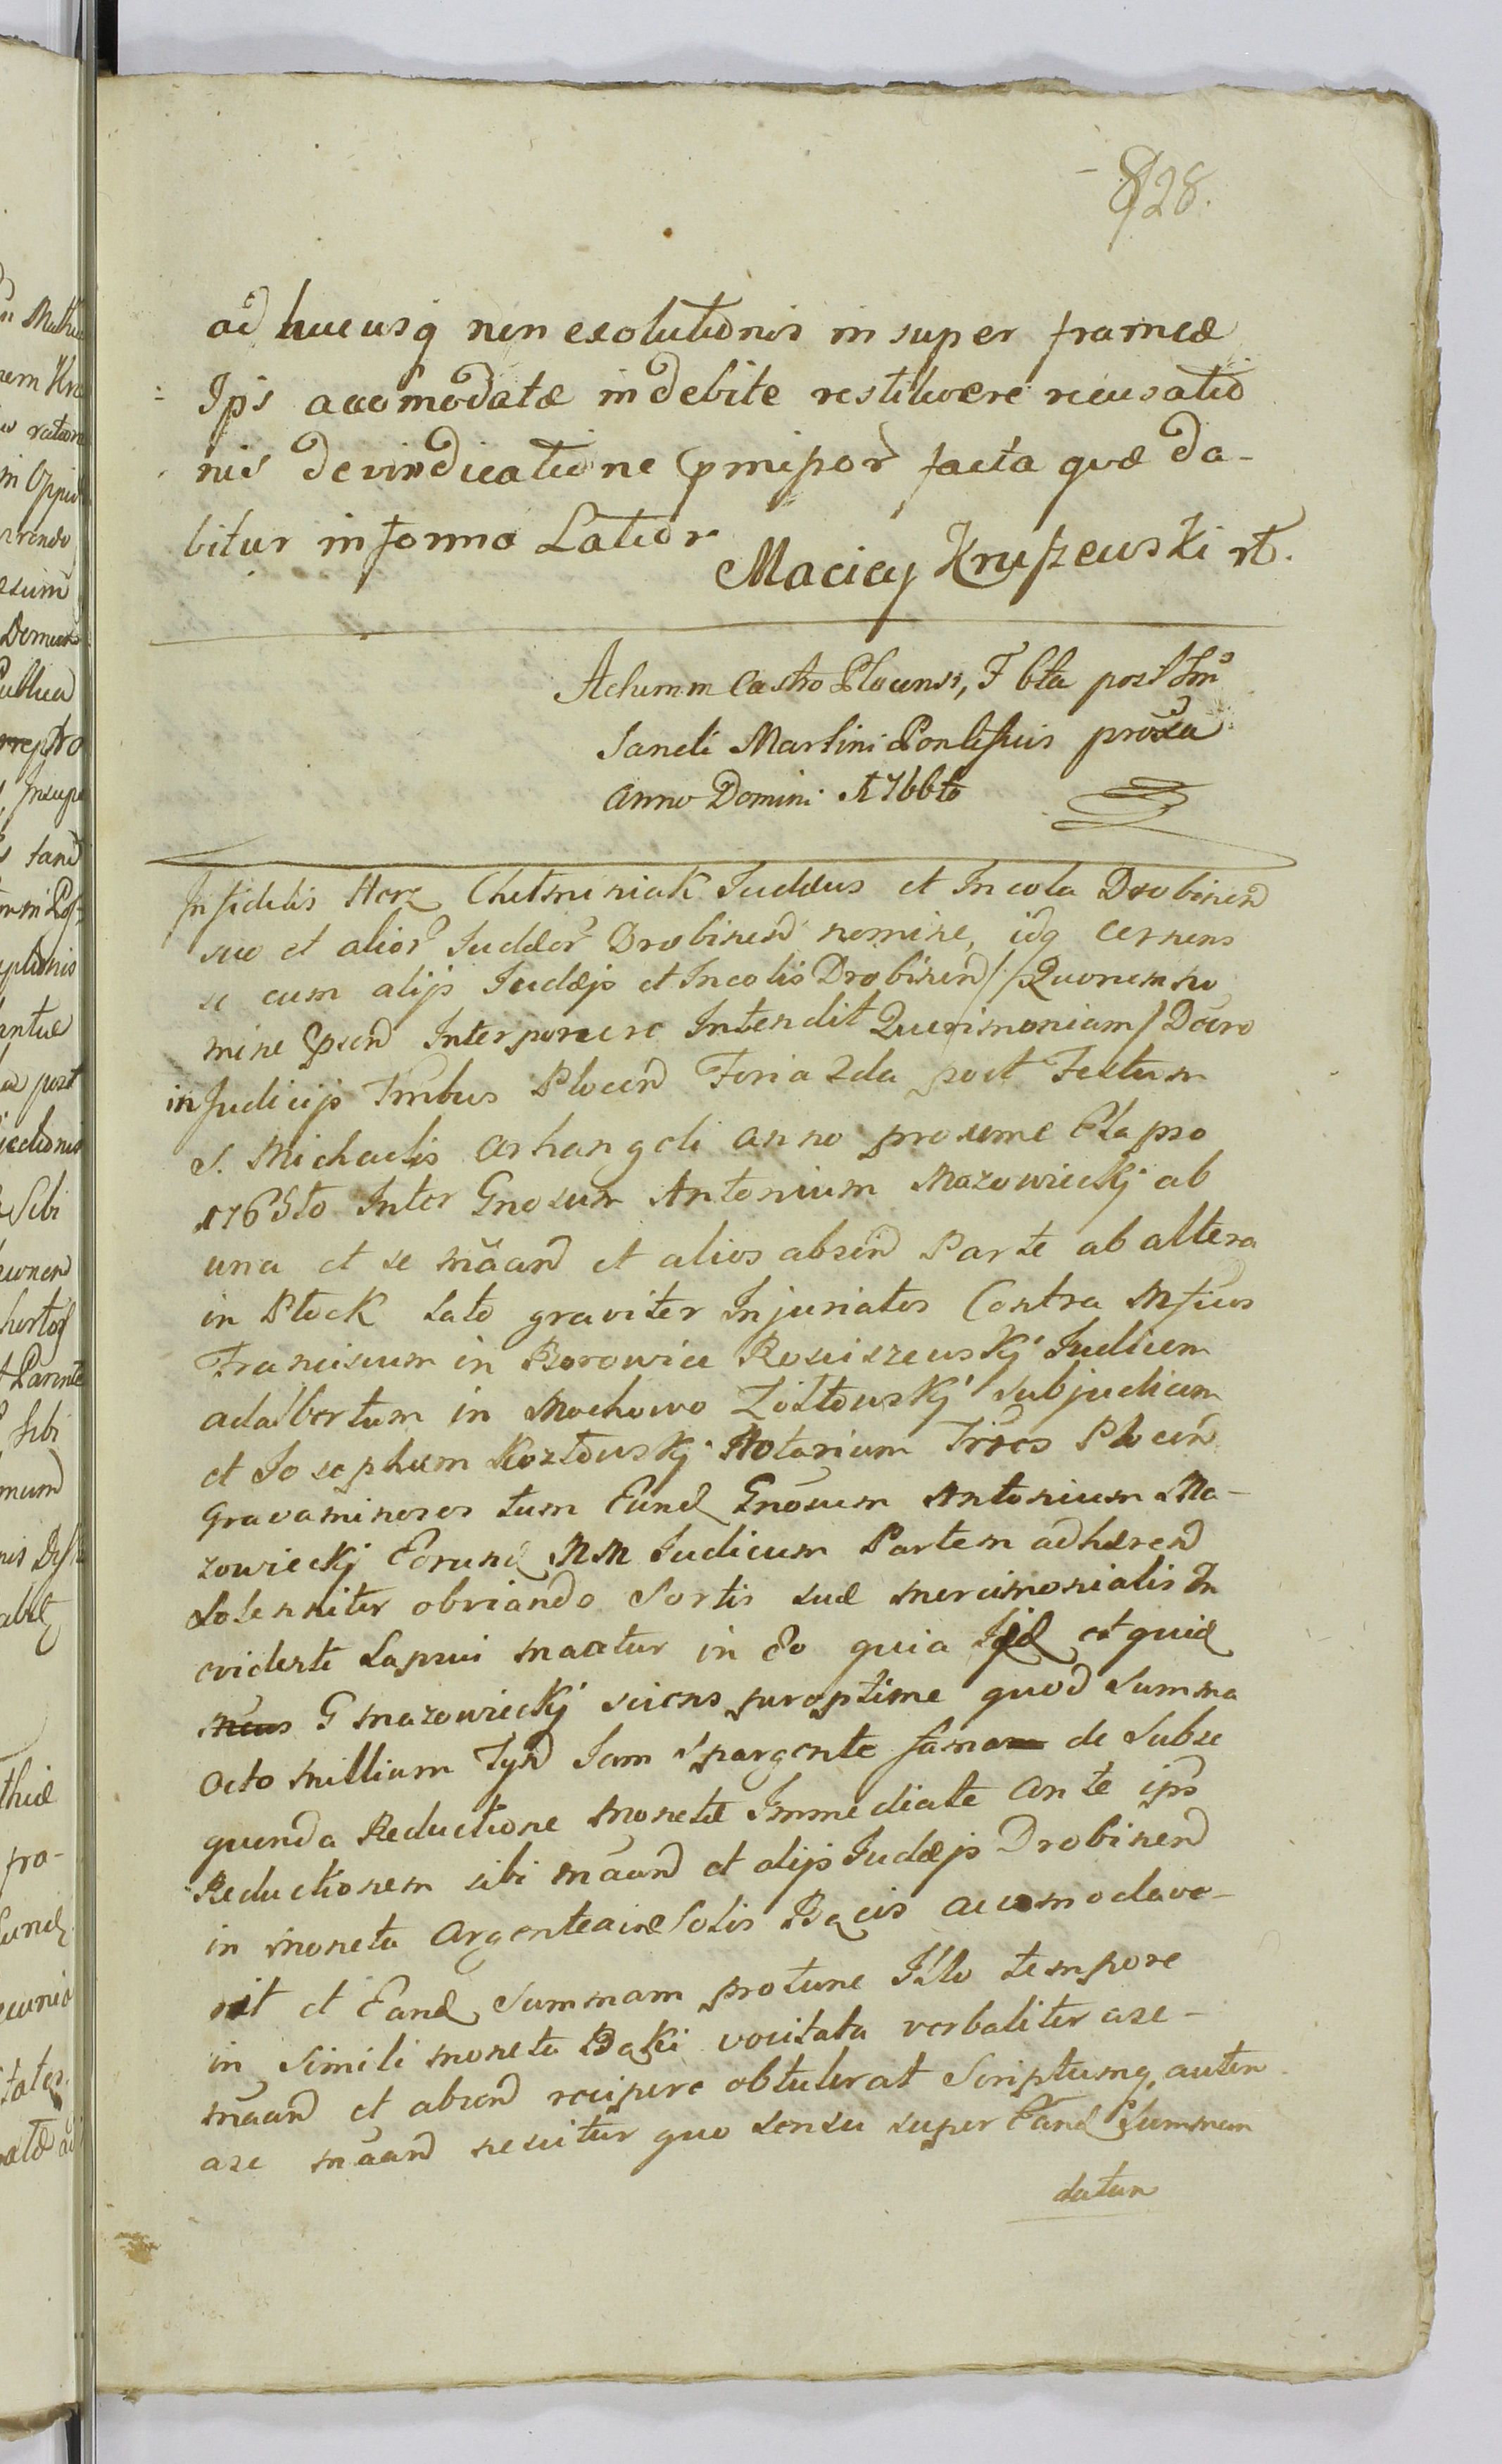 828.
ad hucusq non exolutionis in super frameæ
Ips accomodatæ indebite restituere recusatio
nis devindicatione pmipor facta quæ da-
bitur in forma Latior
Maciey Kruszewski rt.
Actum in Castro Plocensi, F 6ta post Fm
Sancti Martini Pontificis proxa
Anno Domini 1766to
Infidelis Herz Chetminiak Judæus et Incola Drobinen
suo et alior Judæor Drobinen nomine, idq cernens
se cum alijs Judæis et Incolis Drobinen / Quorum no
mine psen Interponere Intendit Querimoniam /
in Judicijs Trribus Plocen Feria 2da post Festum
S. Michaelis Arhangeli anno proxime Elapso
1765to Inter Gnosum Antonium Mazowieckj ab
una et se maan et alios absen Parte ab altera
in Plock Lato graviter Injuriatos Contra Mficos
Franciscum in Borowice Rosciszewskj Judicem
Adalbertum in Mochowo Zołtowskj Subjudicem
et Josephum Kozłowskj Notarium Trres Plocen
Gravaminosos tum Eund Gnosum Antonium Ma-
zowieckj Eorund MM Judicum Partem adhæren
Solenniter obviando Sortis suæ mercimonialis In
evidente Lapsui in Eo quia et quid
G Mazowieckj sciens peroptime quod Summa
Octo millium Tyn Jam spargente fama de Subse
quenda Reductione Monetæ Immediate ante ips
Reductionem sibi maan et alijs Judæis Drobinen
in moneta Argentea in Solis Bącis accomodave-
rit et Eand Summam protunc Illo tempore
in simili moneta Bąki vocitata verbaliter a se
maan et absen recipere obtulerat Scriptumq autem
a se maan nescitur quo sensu super Eand Summam
datum